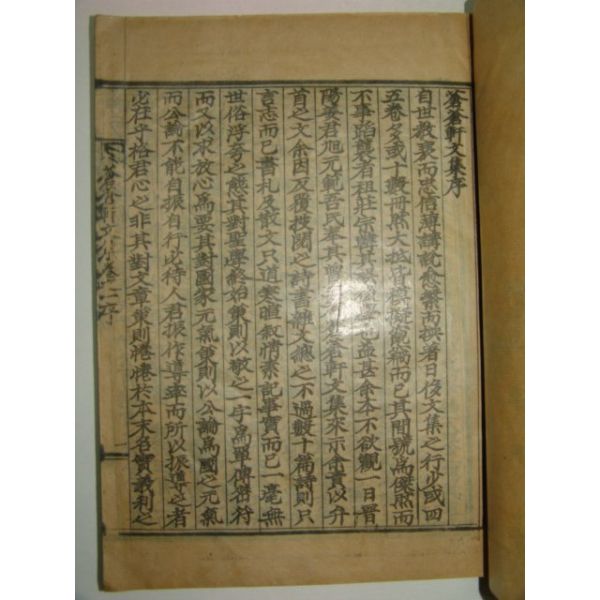 蒼蒼軒文集序
自世敎衰而忠信薄講說愈繁而挾者日後文集之行少或四
五卷多或十數冊然大抵皆模擬
而已其間號爲傑然而
不事蹈襲者祖莊宗
也益甚余本不欲觀一日晋
陽姜君旭元範吾氏奉其
蒼蒼軒文集來示余責以弁
首之文余因反覆披閱之詩書雜文摠之不過數十篇詩則只
言志而已書札及散文只道寒暄叙情素記事實而已一毫無
世俗浮夸之態其對聖學終始策則以敬之一字爲單傳密符
而又以求放心爲要其對國家元氣策則以公論爲國之元氣
而公論不能自振自行必待人君振作導率而所以振導之者
必在乎格君心之非其對文章策則惓惓於本末名實義利之
蒼蒼軒文集卷之一 序